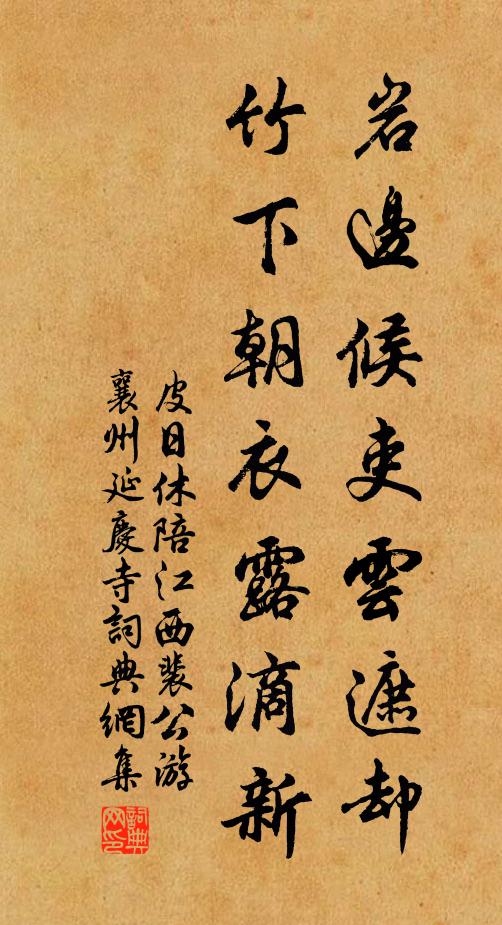 岩邊候吏雲遮却
竹下朝衣露滴新
皮日休陪江西裴公游
襄州延慶寺詞典網集
詞典网印